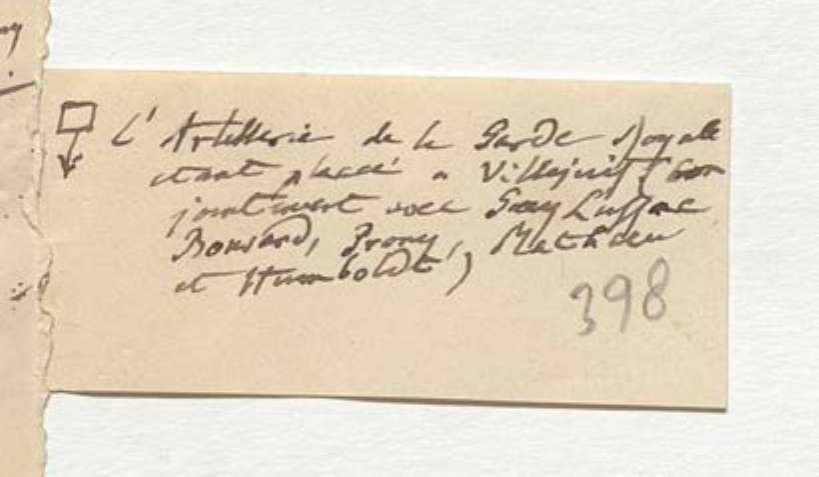 L'Artillerie de la Garde Royale
étant placée a Villejuif (con
jointement avec Gay Lussac
Bouvard, Prony, Mathieu
et Humboldt)
398